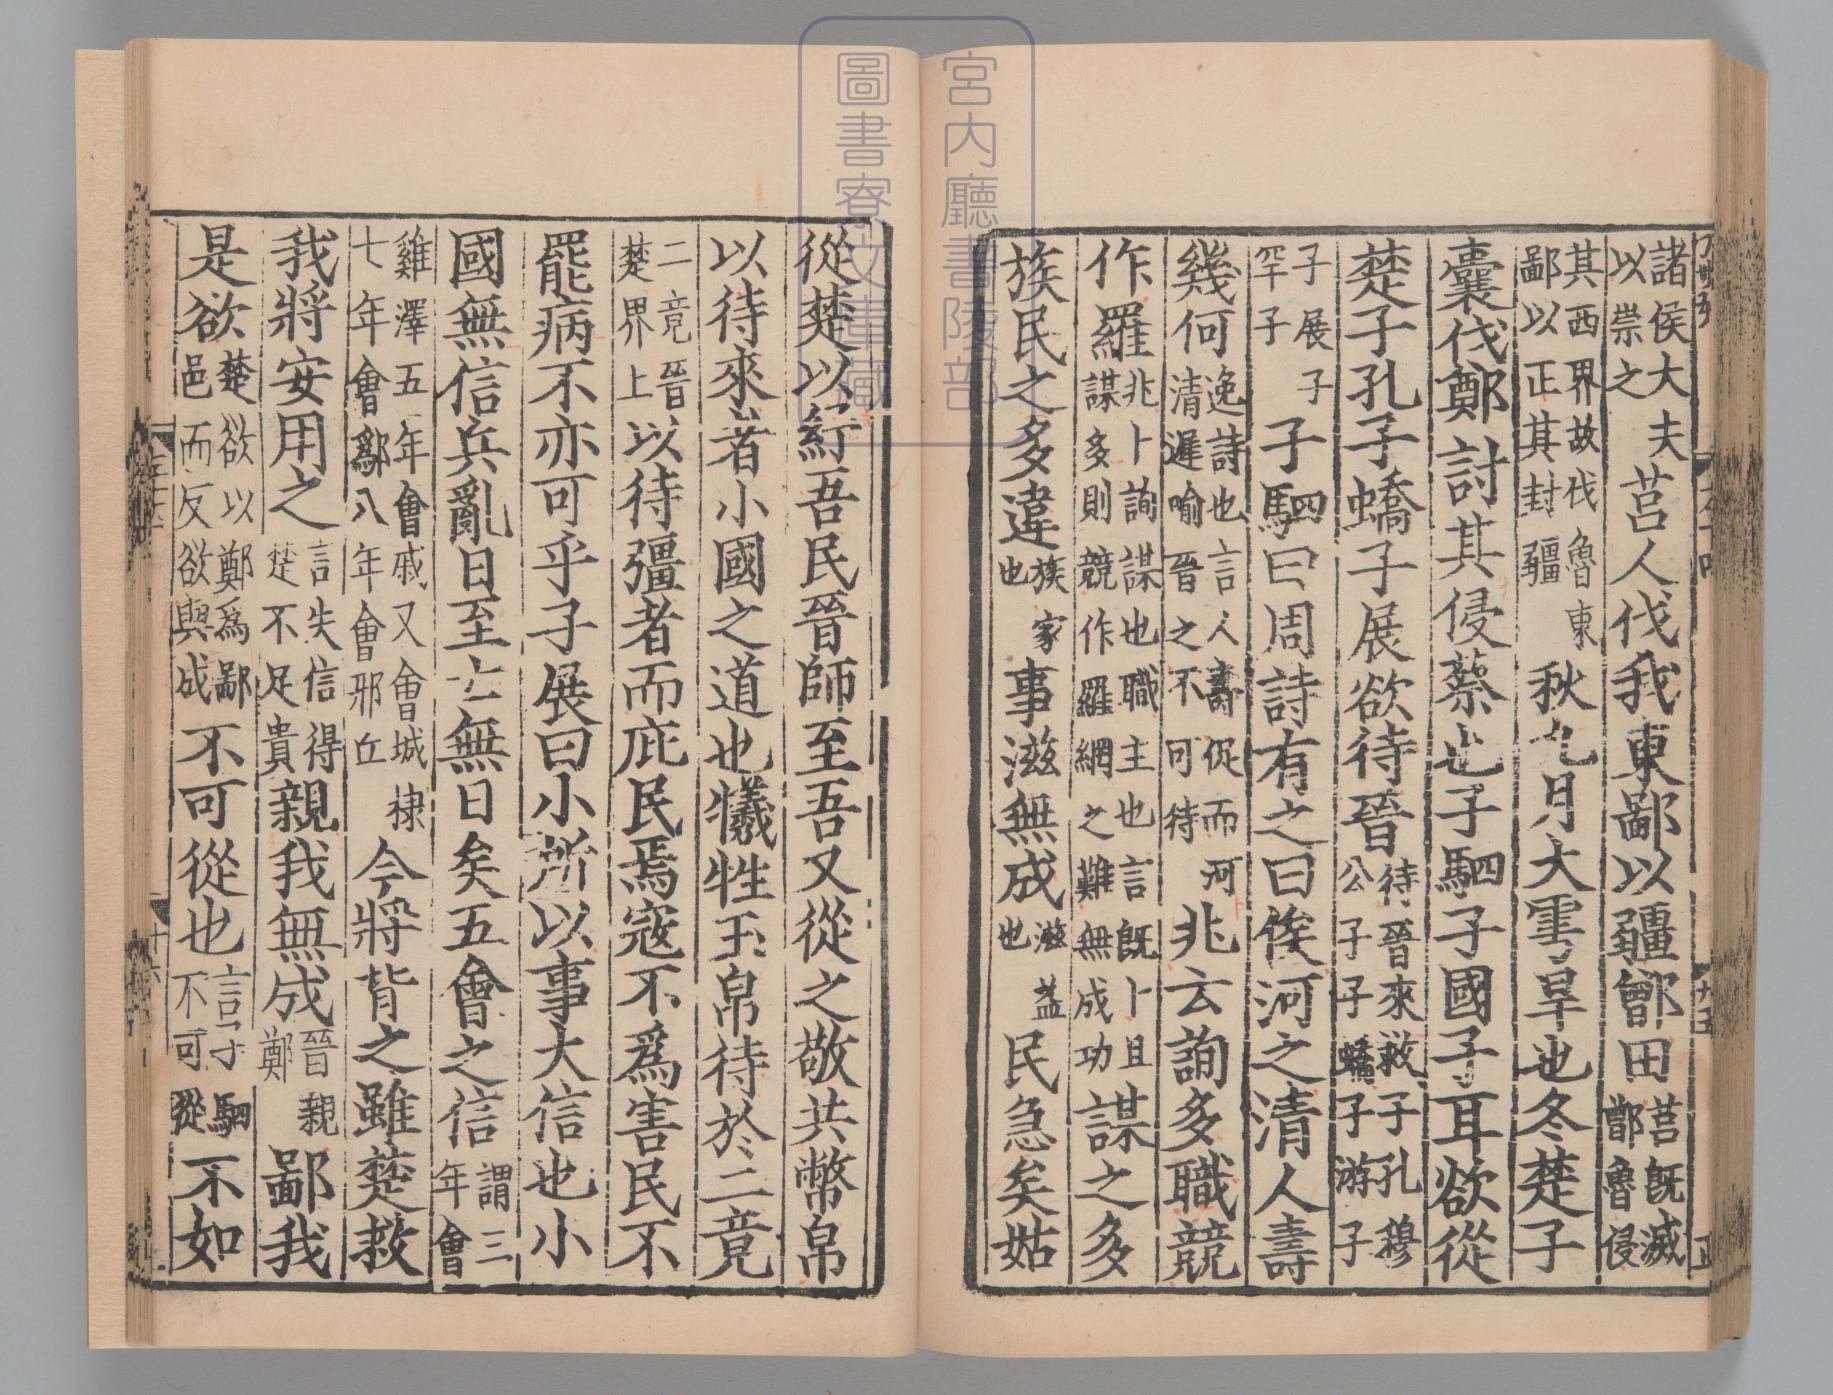 諸侯大夫以崇之莒人伐我東鄙以疆鄫田莒既滅鄫魯侵
其西界故伐魯東鄙以正其封疆秋九月大雩旱也冬楚子
囊伐鄭討其侵蔡也子駟子國子耳欲從
楚子孔子蟜子展欲待晉待晉來救子孔穆公子子蟜子游子
子展子罕子子駟曰周詩有之曰俟河之清人壽
幾何逸詩也言人壽促而河清遲喻晉之不可待兆云詢多職競
作羅兆卜詢謀也職主也言既卜且謀多則競作羅網之難無成功謀之多
族民之多違族家也事滋無成滋益也民急矣姑
從楚以紓吾民晉師至吾又從之敬共幣帛
以待來者小國之道也犧牲玉帛待於二竟
二竟晉楚界上以待彊者而庇民焉寇不爲害民不
罷病不亦可乎子展曰小所以事大信也小
國無信兵亂日至亡無日矣五會之信謂三年會
雞澤五年會戚又會城棣七年會鄬八年會邢丘今將背之雖楚救
我將安用之言失信得楚不足貴親我無成晉親鄭鄙我
是欲楚欲以鄭爲鄙邑而反欲與成不可從也言子駟不可從不如
十五
十六
宮內廳書陵部
圖書寮文庫藏